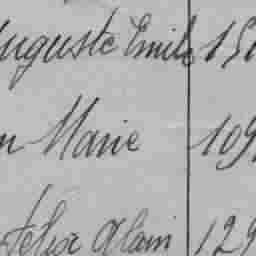 Auguste Emile 15
Marie 109
Felix Alain 129